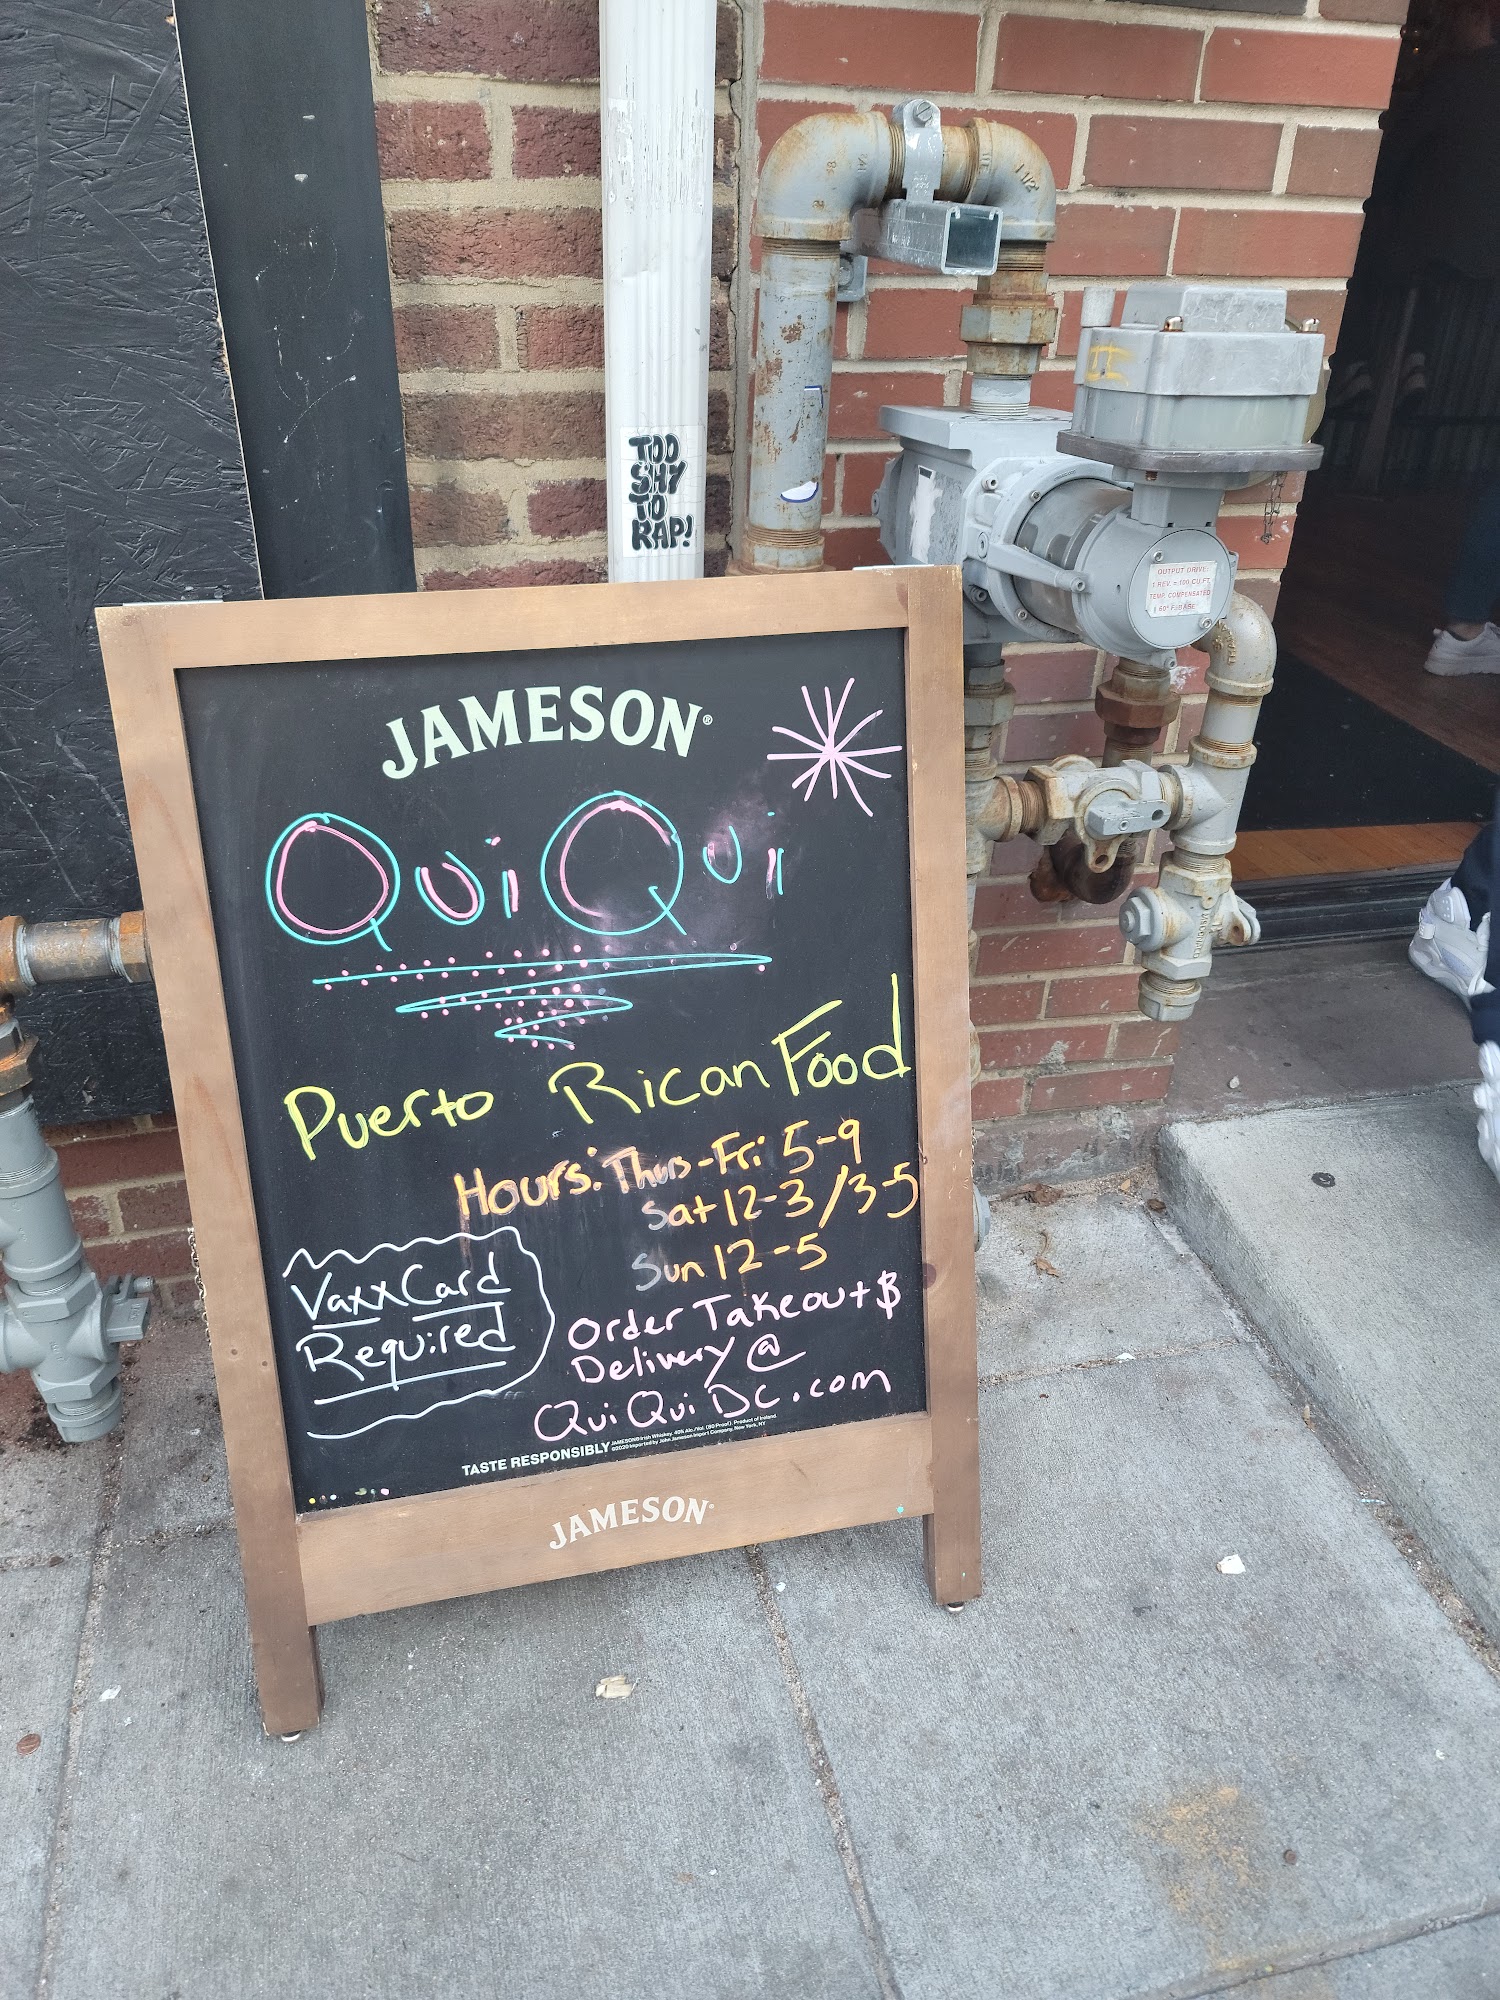 TOO
SHY
TO
RAP!
OUTPUT DRIVE:
1 REV = 100 CU.FT.
TEMP. COMPENSATED
60° F. BASE
JAMESON®
QuiQui
Puerto Rican Food
Hours: Thurs-Fri 5-9
Sat 12-3/3-5
Sun 12-5
Vaxx Card
Required
Order Takeout &
Delivery @
QuiQuiDC.com
TASTE RESPONSIBLY
JAMESON® Irish Whiskey. 40% Alc./Vol. (80 Proof). Product of Ireland.
©2020 Imported by John Jameson Import Company, New York, NY
JAMESON®